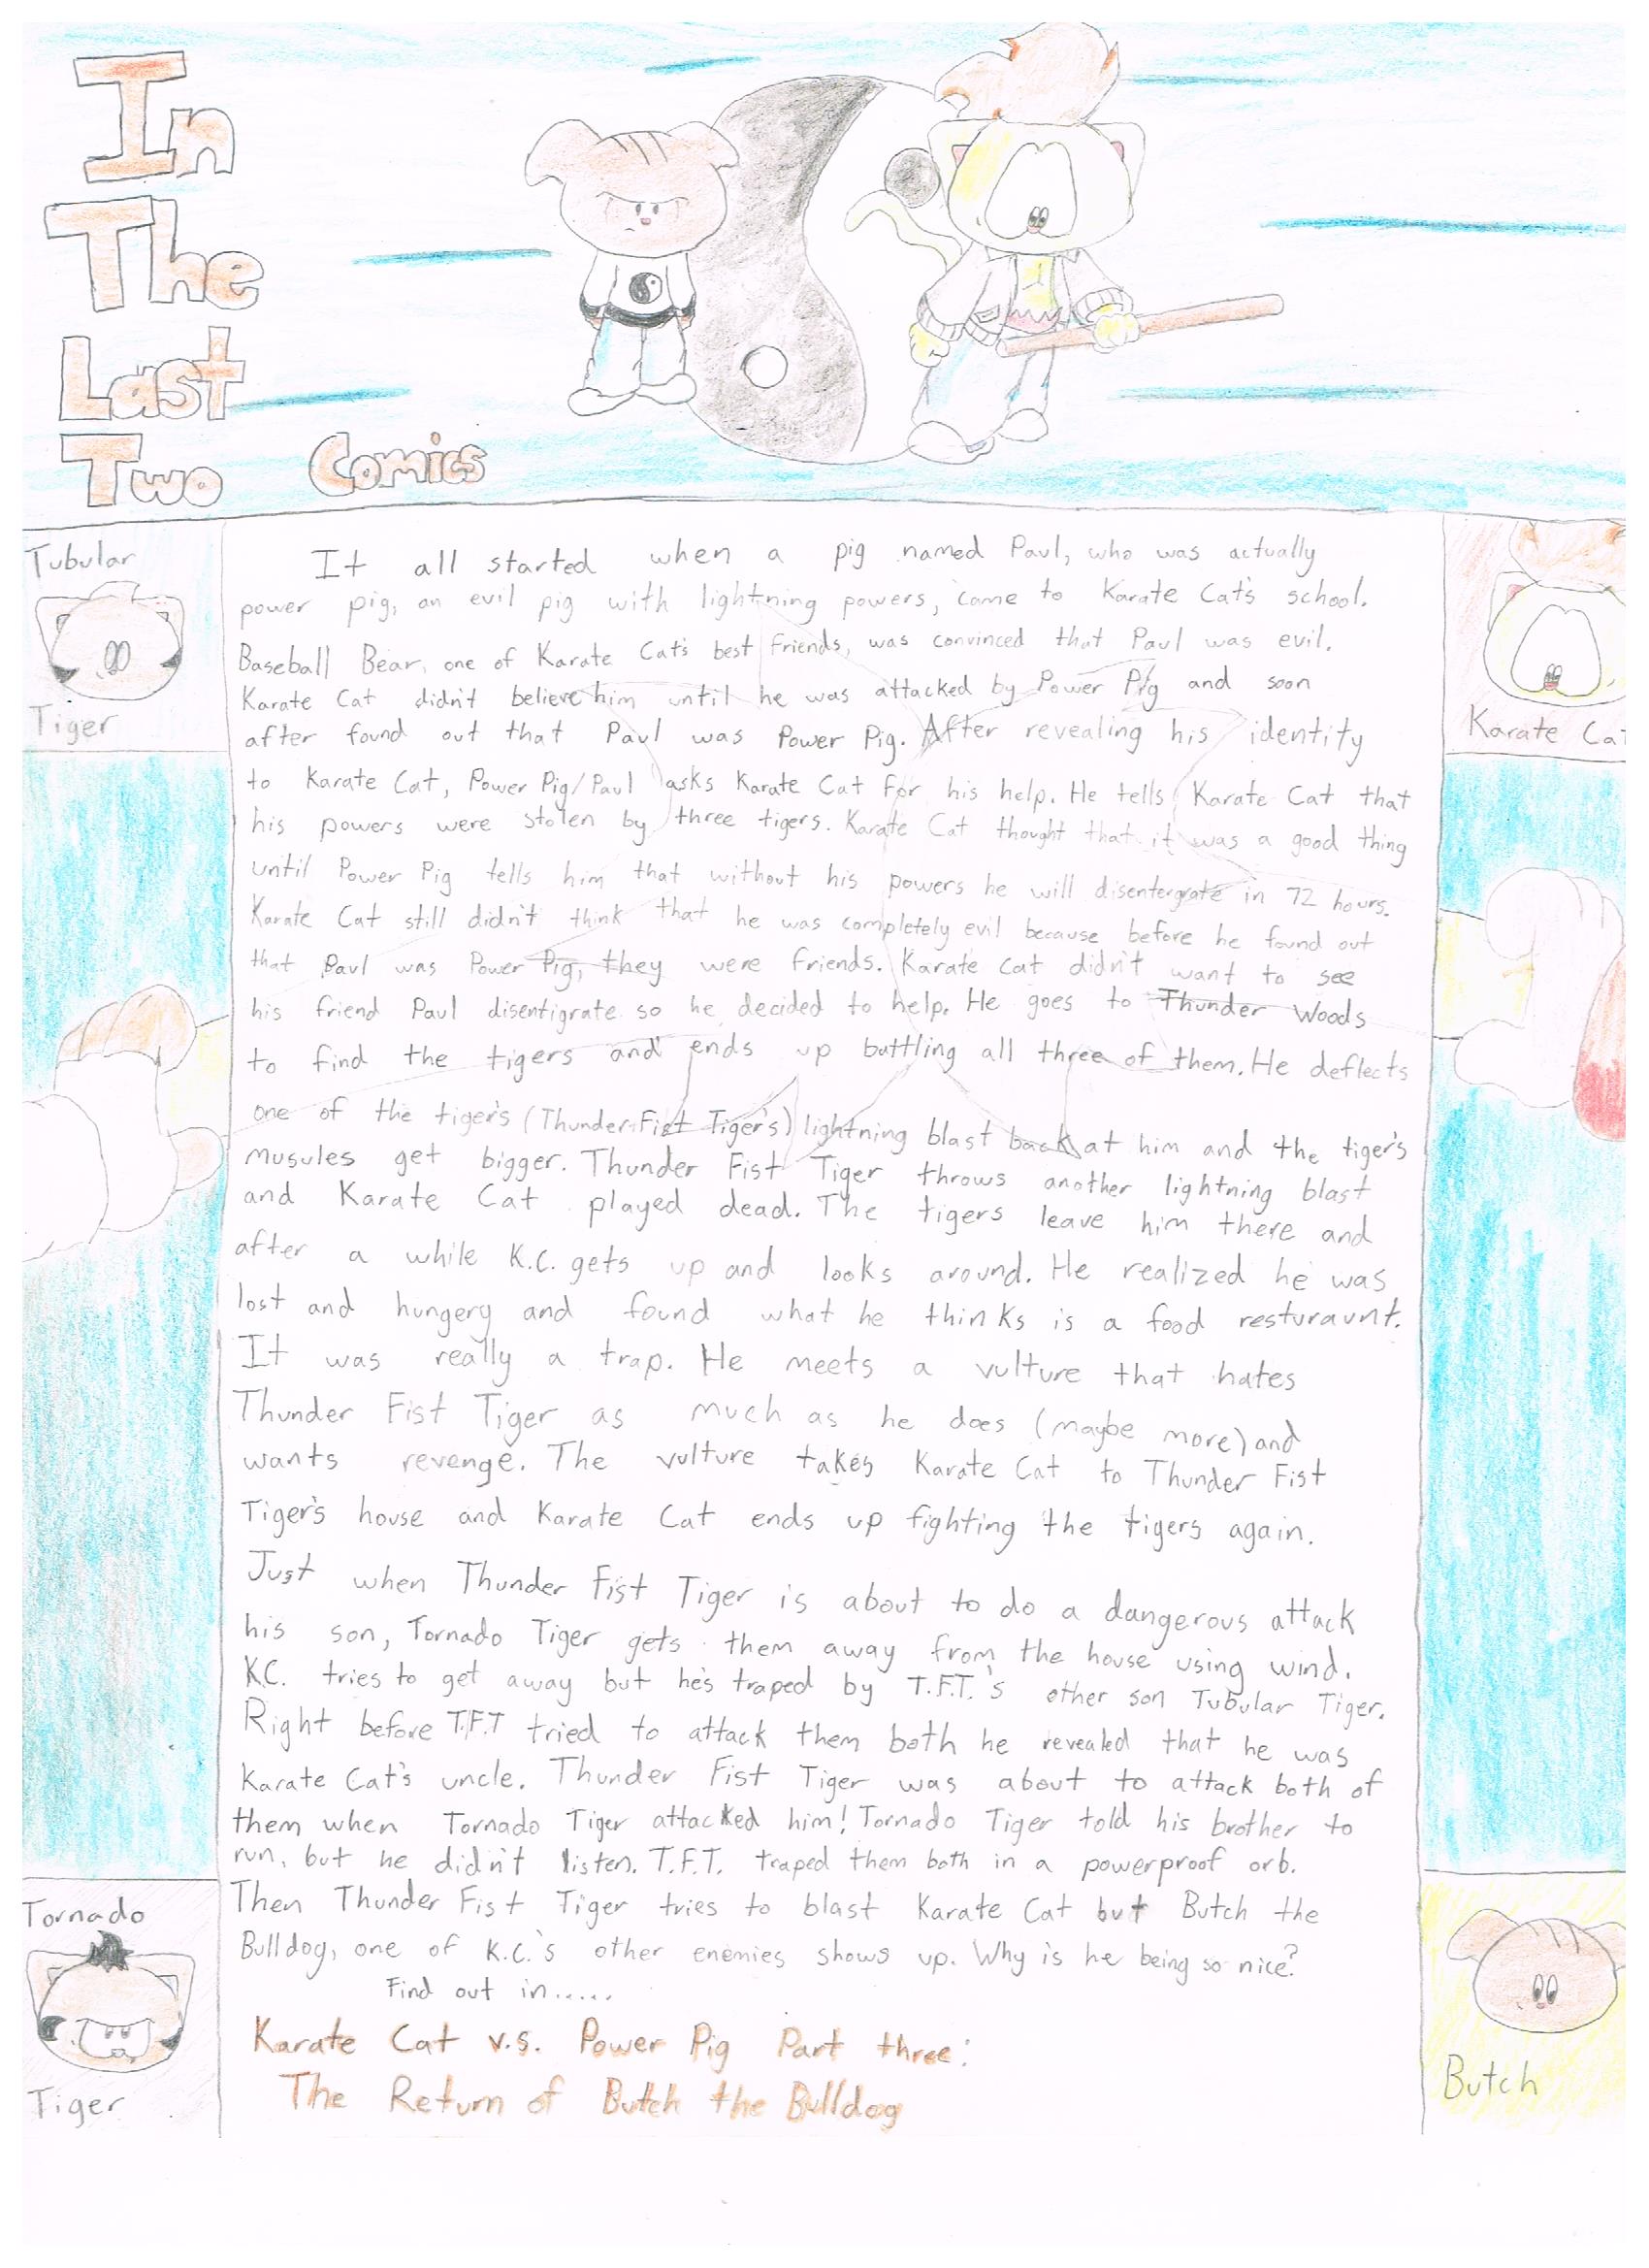 In
The
Last
Two Comics
Tubular
Tiger
Karate Cat
It all started when a pig named Paul, who was actually
power pig, an evil pig with lightning powers, came to Karate Cat's school.
Baseball Bear, one of Karate Cat's best friends, was convinced that Paul was evil.
Karate Cat didn't believe him until he was attacked by Power Pig and soon
after found out that Paul was Power Pig. After revealing his identity
to Karate Cat, Power Pig/Paul asks Karate Cat for his help. He tells Karate Cat that
his powers were stolen by three tigers. Karate Cat thought that it was a good thing
until Power Pig tells him that without his powers he will disentergrate in 72 hours.
Karate Cat still didn't think that he was completely evil because before he found out
that Paul was Power Pig, they were friends. Karate cat didn't want to see
his friend Paul disentigrate so he decided to help. He goes to Thunder Woods
to find the tigers and ends up battling all three of them. He deflects
one of the tiger's (Thunder Fist Tiger's) lightning blast back at him and the tiger's
musules get bigger. Thunder Fist Tiger throws another lightning blast
and Karate Cat played dead. The tigers leave him there and
after a while K.C. gets up and looks around. He realized he was
lost and hungery and found what he thinks is a food resturaunt.
It was really a trap. He meets a vulture that hates
Thunder Fist Tiger as much as he does (maybe more) and
wants revenge. The vulture takes Karate Cat to Thunder Fist
Tiger's house and Karate Cat ends up fighting the tigers again.
Just when Thunder Fist Tiger is about to do a dangerous attack
his son, Tornado Tiger gets them away from the house using wind.
K.C. tries to get away but he's traped by T.F.T.'s other son Tubular Tiger.
Right before T.F.T tried to attack them both he revealed that he was
Karate Cat's uncle. Thunder Fist Tiger was about to attack both of
them when Tornado Tiger attacked him! Tornado Tiger told his brother to
run, but he didn't listen. T.F.T. traped them both in a powerproof orb.
Then Thunder Fist Tiger tries to blast Karate Cat but Butch the
Bulldog, one of K.C.'s other enemies shows up. Why is he being so nice?
Find out in.....
Karate Cat v.s. Power Pig Part three:
The Return of Butch the Bulldog
Tornado
Tiger
Butch